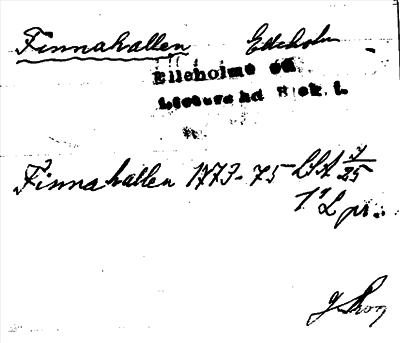 Finnahallen Elleholm
Elleholms sn
Listers hd Blek. l.
Finnahallen 1773-75 LSA 7/25
1"L pr.